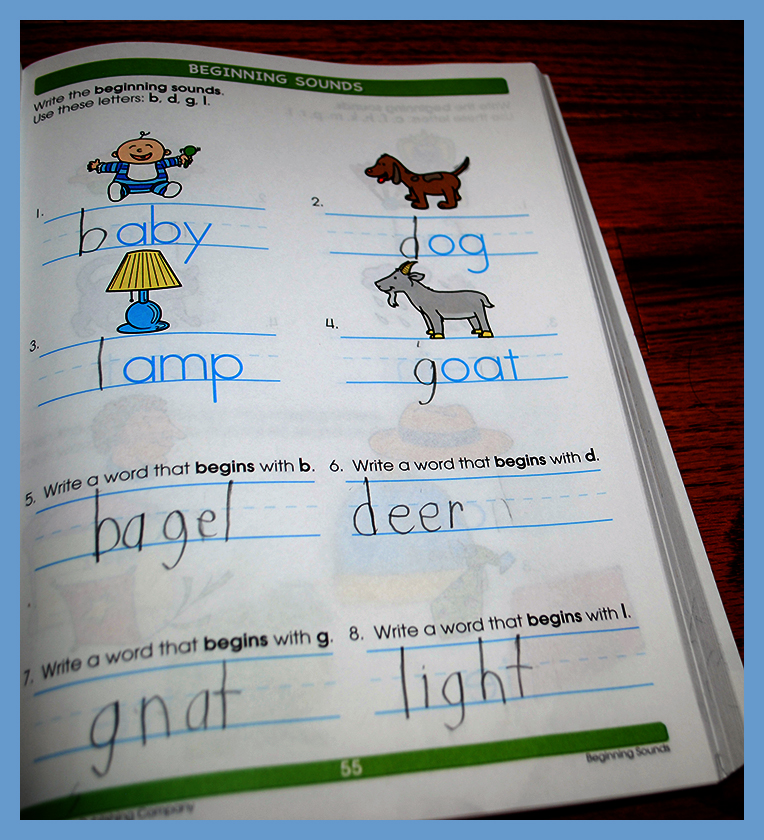 BEGINNING SOUNDS
Write the beginning sounds.
Use these letters: b, d, g, l.
1. baby
2. dog
3. lamp
4. goat
5. Write a word that begins with b.
bagel
6. Write a word that begins with d.
deer
7. Write a word that begins with g.
gnat
8. Write a word that begins with l.
light
55
Beginning Sounds
Company